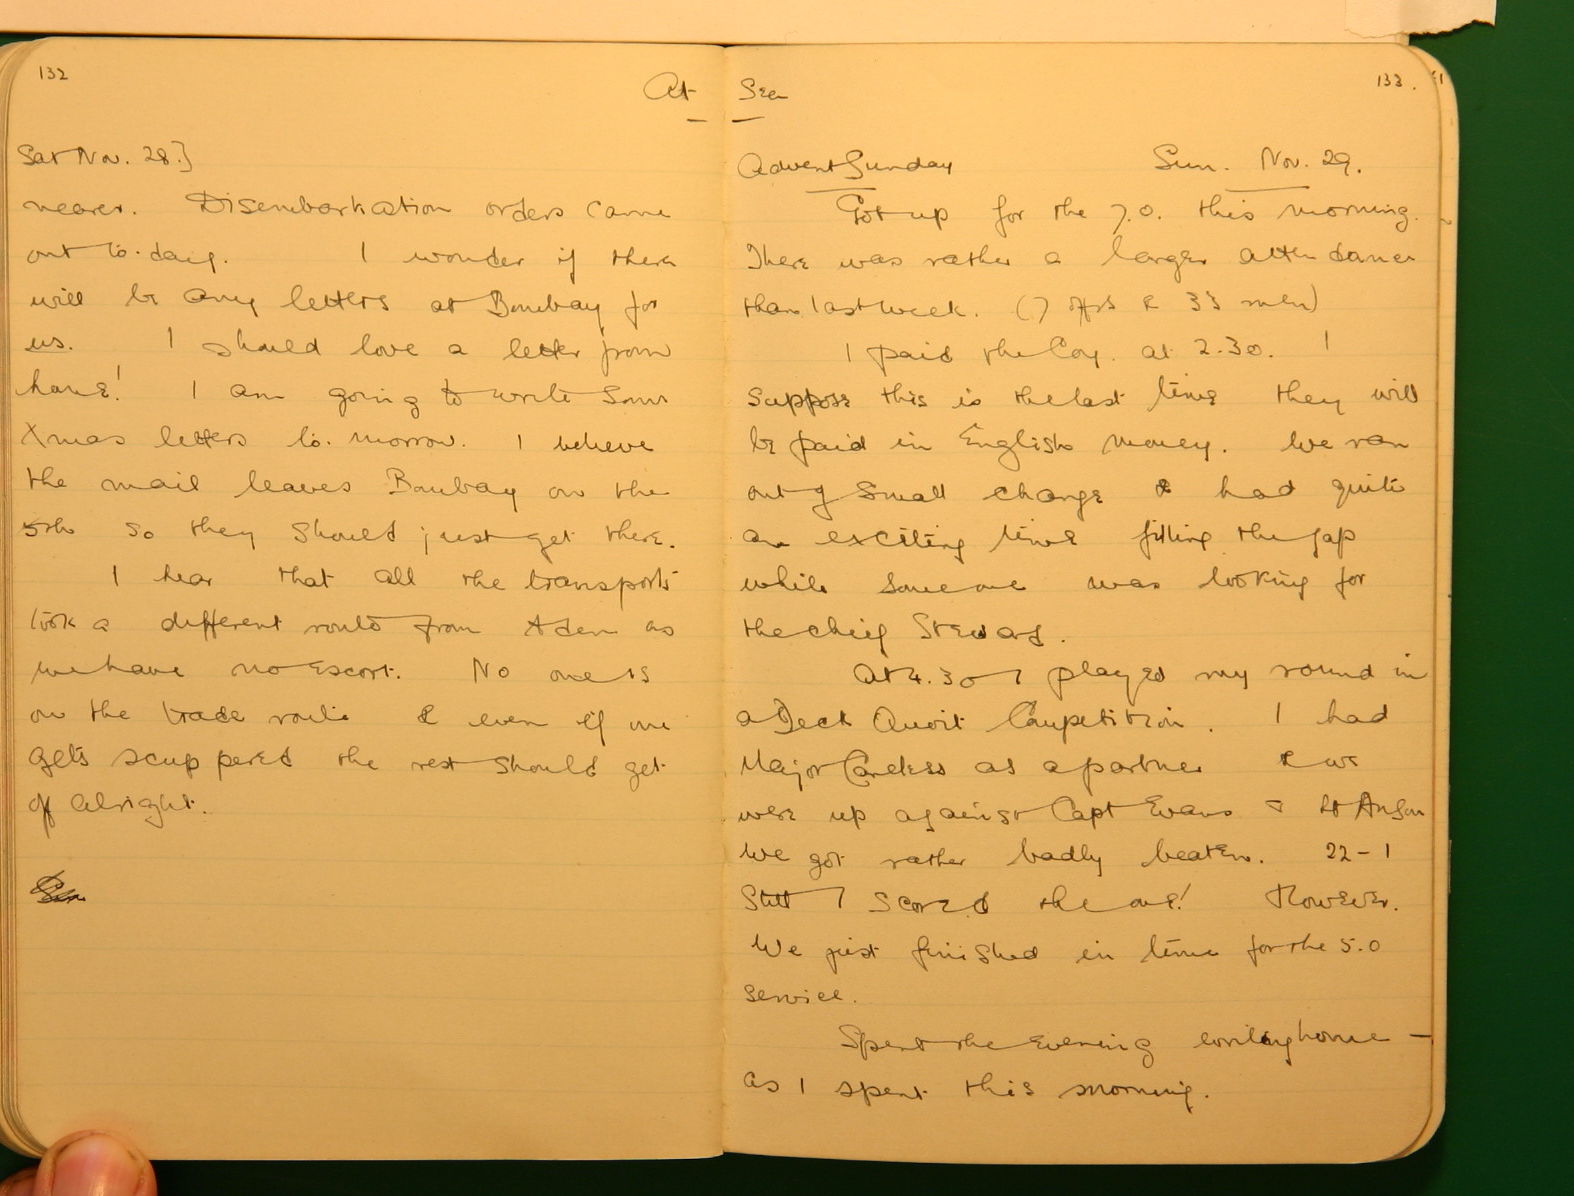 132
At Sea
133.
Sat Nov. 28.]
nearer. Disembarkation orders came
out to-day. I wonder if there
will be any letters at Bombay for
us. I should love a letter from
home! I am going to write some
Xmas letters to-morrow. I believe
the mail leaves Bombay on the
5th so they should just get there.
I hear that all the transports
took a different route from Aden as
we have no escort. No one is
on the trade route & even if one
gets scuppered the rest should get
off alright.
Advent Sunday Sun. Nov. 29.
Got up for the 7.0. this morning.
There was rather a larger attendance
than last week. (7 offs & 33 men)
I paid the Coy. at 2.30. I
suppose this is the last time they will
be paid in English money. We ran
out of small change & had quite
an exciting time filling the gap
while someone was looking for
the chief Steward.
At 4.30 I played my round in
a Deck Quoit Competition. I had
Major Careless as a partner & we
were up against Capt Evans & Lt Anson
We got rather badly beaten. 22-1
Still I scored the one! However.
We just finished in time for the 5.0
service.
Spent the evening writing home -
as I spent this morning.